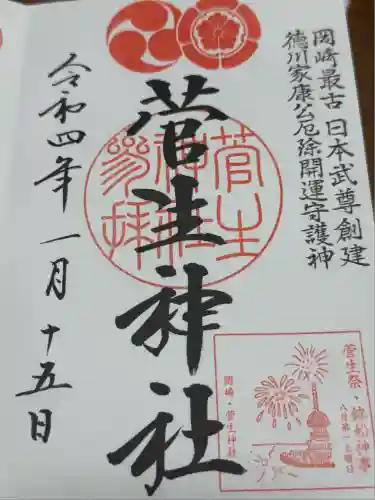 岡崎最古 日本武尊創建
徳川家康公厄除開運守護神
菅生神社
菅生
神社
参拝
令和四年 一月 十五日
菅生祭・鉾船神事
八月第一土曜日
岡崎・菅生神社